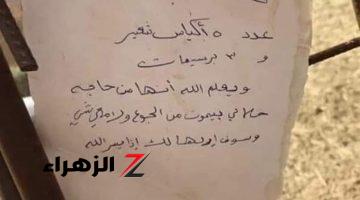 عدد ٥ أكياس شعير
و ٣ برسيمات
ويعلم الله أنها من حاجه
حلالي بيموت من الجوع ولا معي شي
وسوف اردها لك إذا يسر الله
الزهراء